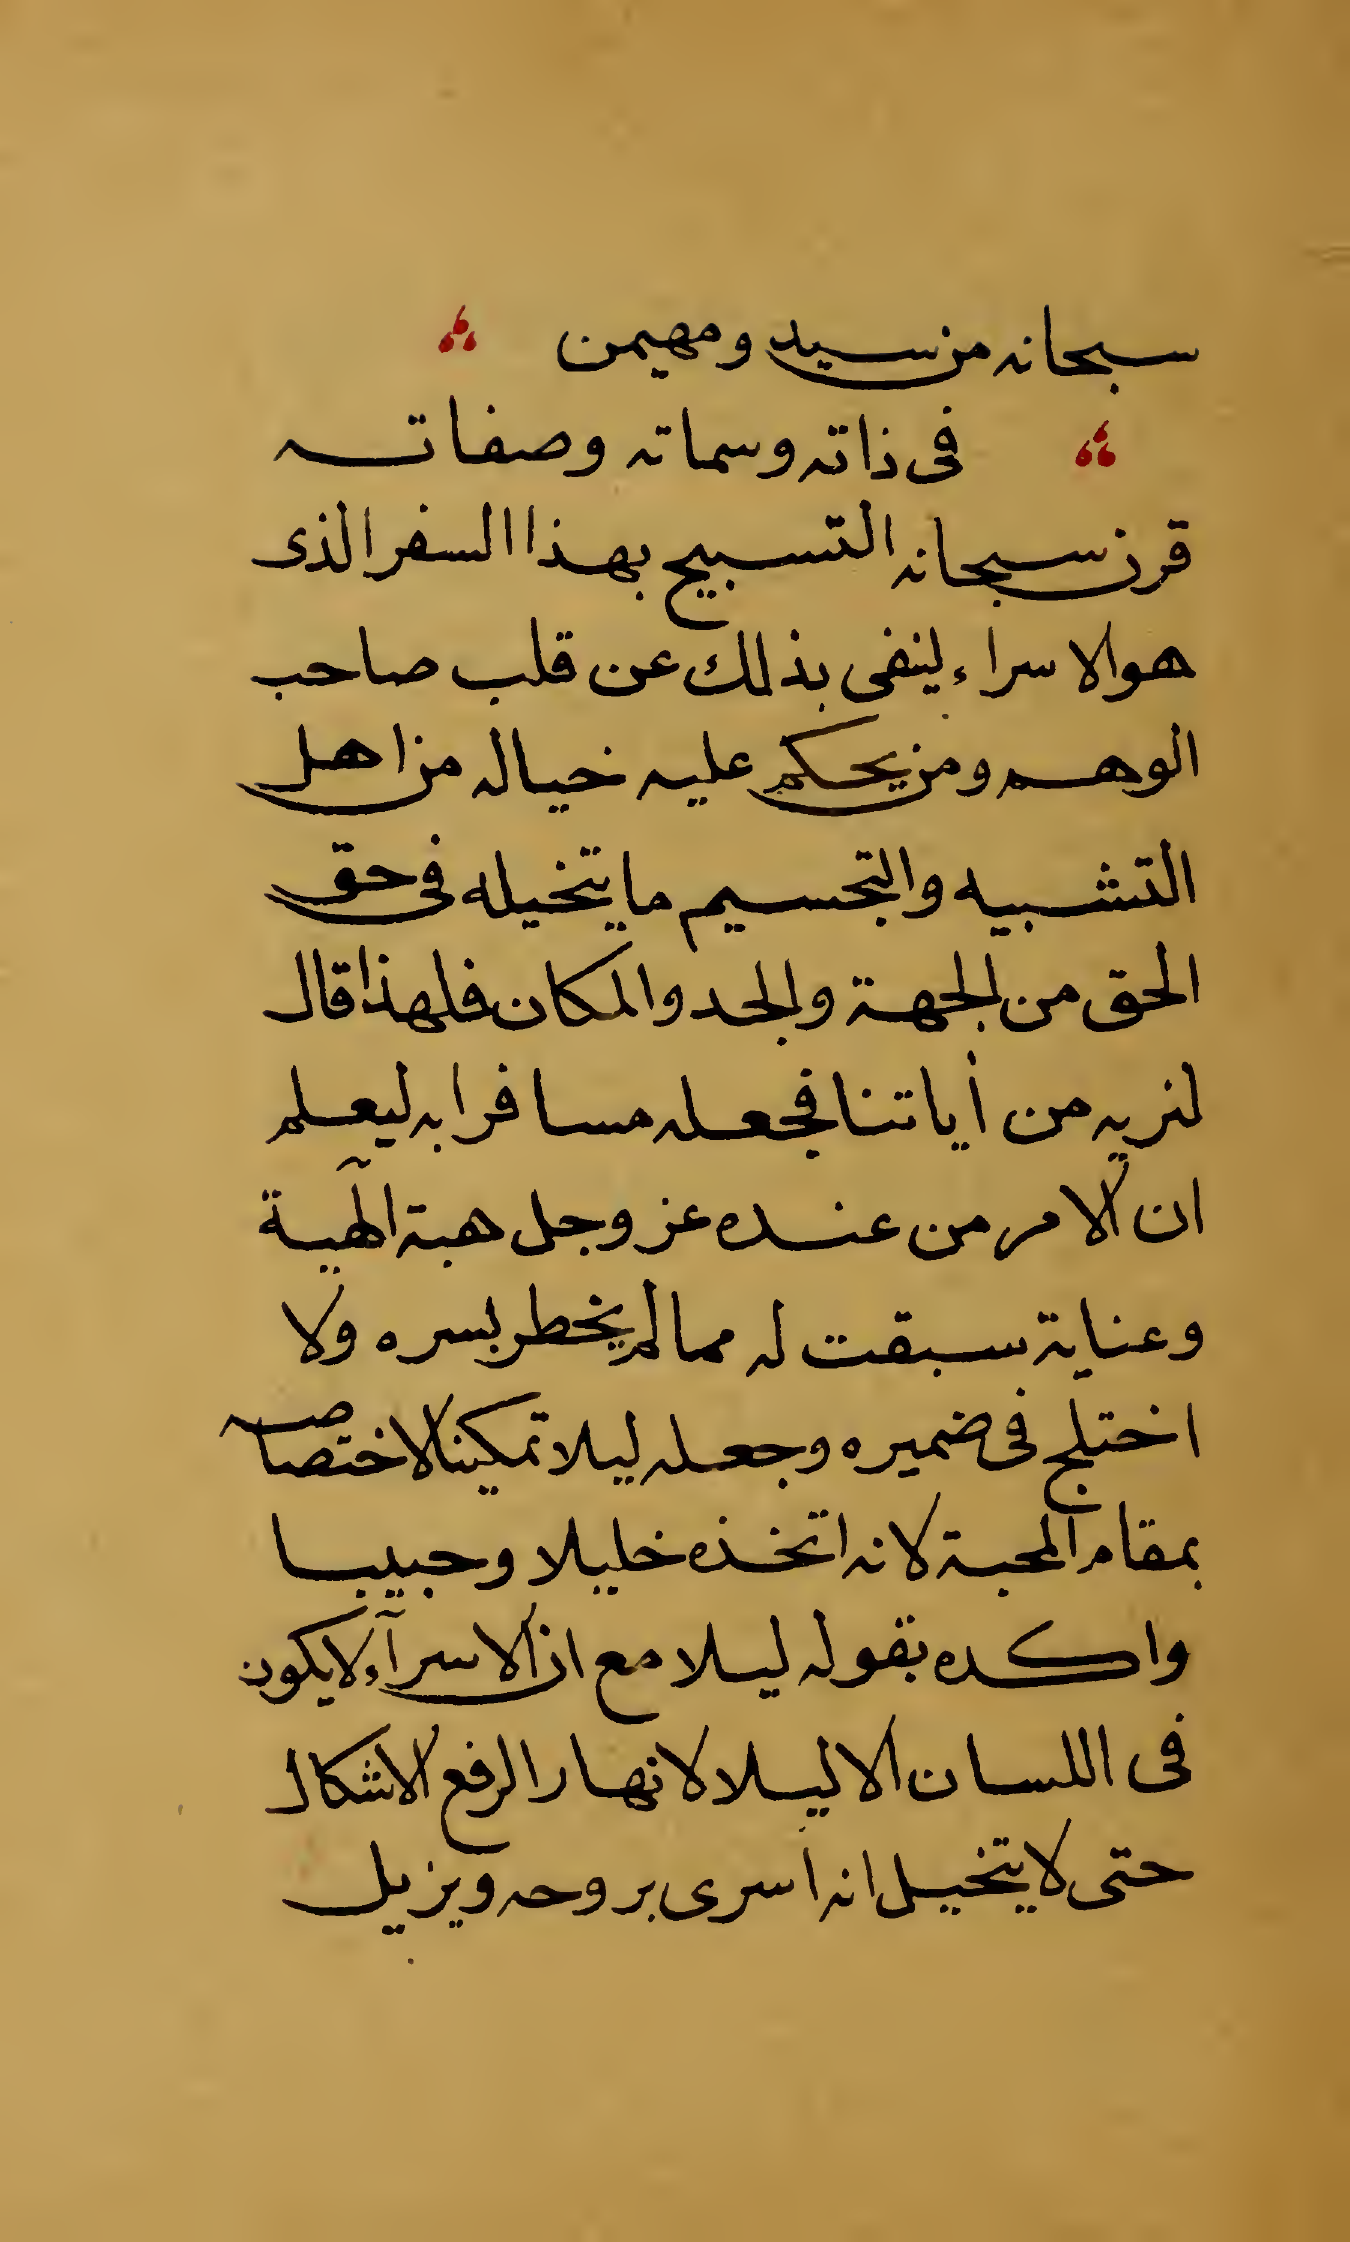 سبحانه من سيد ومهيمن
في ذاته وسماته وصفاته
قرن سبحانه التسبيح بهذا السفر الذى
هو الاسراء لينفى بذلك عن قلب صاحب
الوهم ومن يحكم عليه خياله من اهل
التشبيه والتجسيم ما يتخيله فى حق
الحق من الجهة والحد والمكان فلهذا قال
لنريه من أياتنا فجعله مسافرا به ليعلم
ان الامر من عنده عز وجل هبة الٓهية
وعناية سبقت له مما لم يخطر بسره ولا
اختلج فى ضميره وجعله ليلا تمكينا لاختصاصه
بمقام المحبة لانه اتخذه خليلا وحبيبا
واكده بقوله ليلا مع ان الاسرآء لا يكون
فى اللسان الا ليلا لا نهارا لرفع الاشكال
حتى لا يتخيل انه اسرى بروحه ويزيل